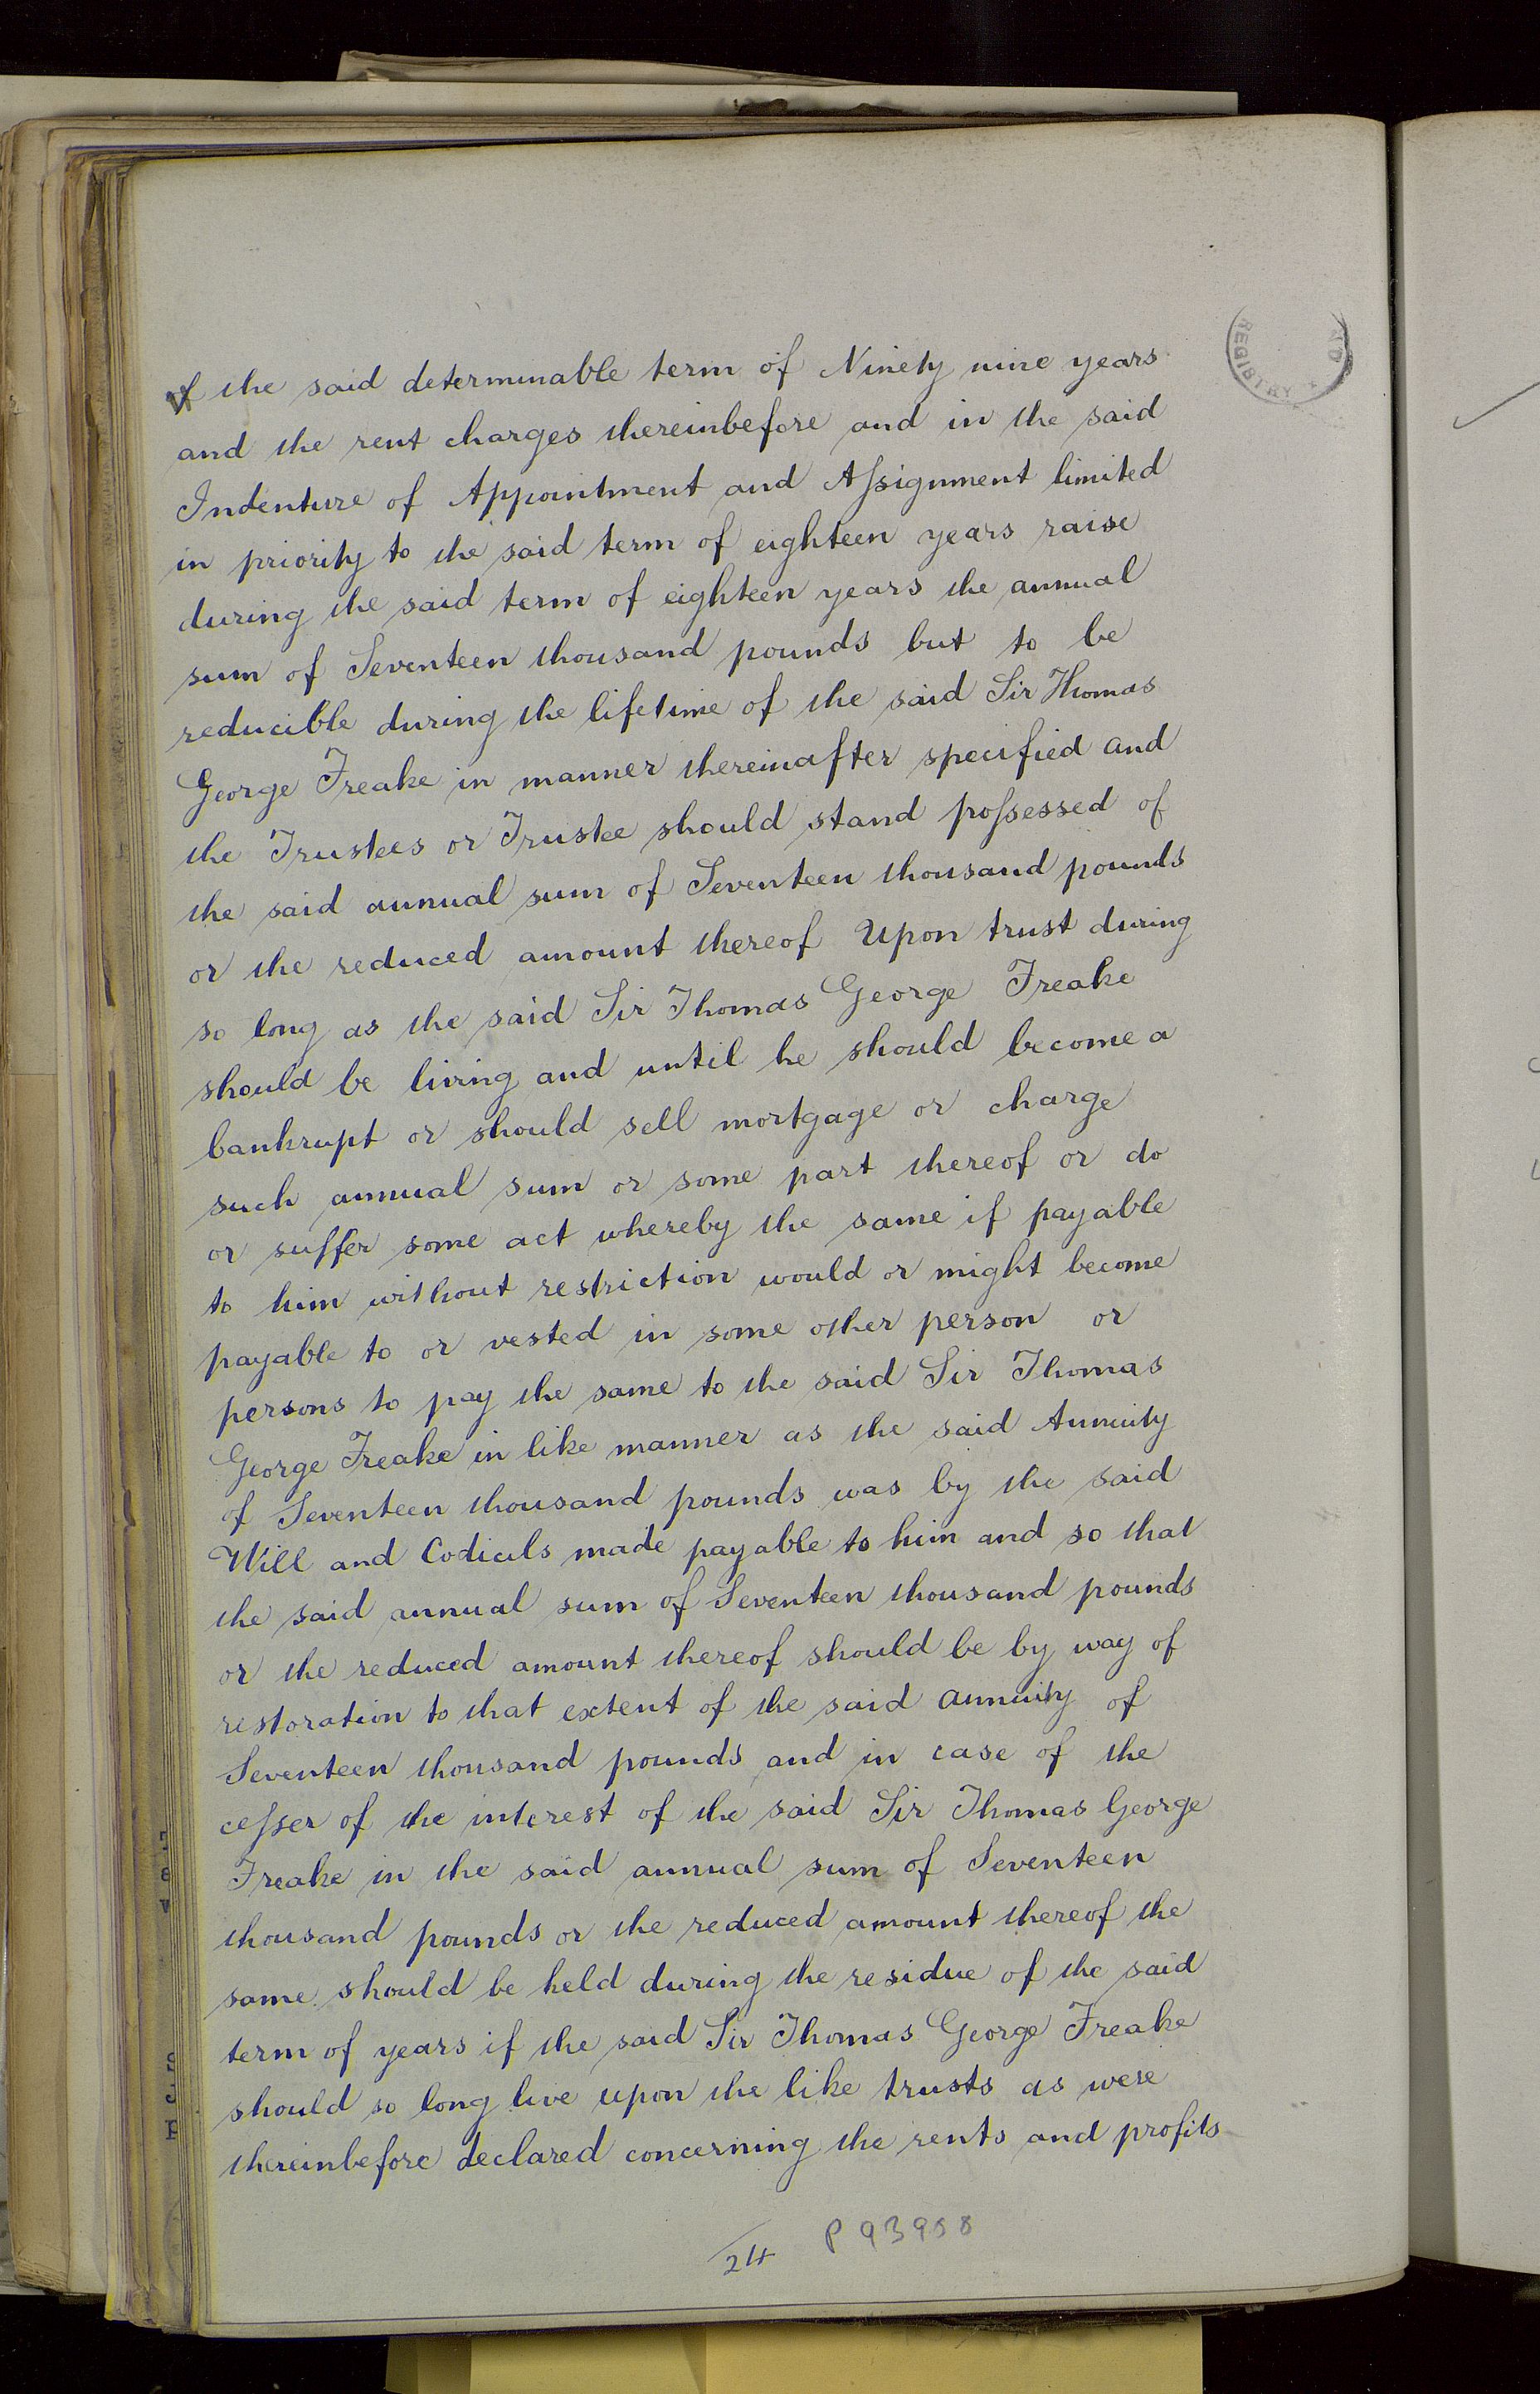 of the said determinable term of Ninety nine years
and the rent charges thereinbefore and in the said
Indenture of Appointment and Assignment limited
in priority to the said term of eighteen years raise
during the said term of eighteen years the annual
sum of Seventeen thousand pounds but to be
reducible during the lifetime of the said Sir Thomas
George Freake in manner thereinafter specified and
the Trustees or Trustee should stand possessed of
the said annual sum of Seventeen thousand pounds
or the reduced amount thereof Upon trust during
so long as the said Sir Thomas George Freake
should be living and until he should become a
bankrupt or should sell mortgage or charge
such annual sum or some part thereof or do
or suffer some act whereby the same if payable
to him without restriction would or might become
payable to or vested in some other person or
persons to pay the same to the said Sir Thomas
George Freake in like manner as the said Annuity
of Seventeen thousand pounds was by the said
Will and Codicils made payable to him and so that
the said annual sum of Seventeen thousand pounds
or the reduced amount thereof should be by way of
restoration to that extent of the said annuity of
Seventeen thousand pounds and in case of the
cesser of the interest of the said Sir Thomas George
Freake in the said annual sum of Seventeen
thousand pounds or the reduced amount thereof the
same should be held during the residue of the said
term of years if the said Sir Thomas George Freake
should so long live upon the like trusts as were
thereinbefore declared concerning the rents and profits
24 P 93958
REGISTRY